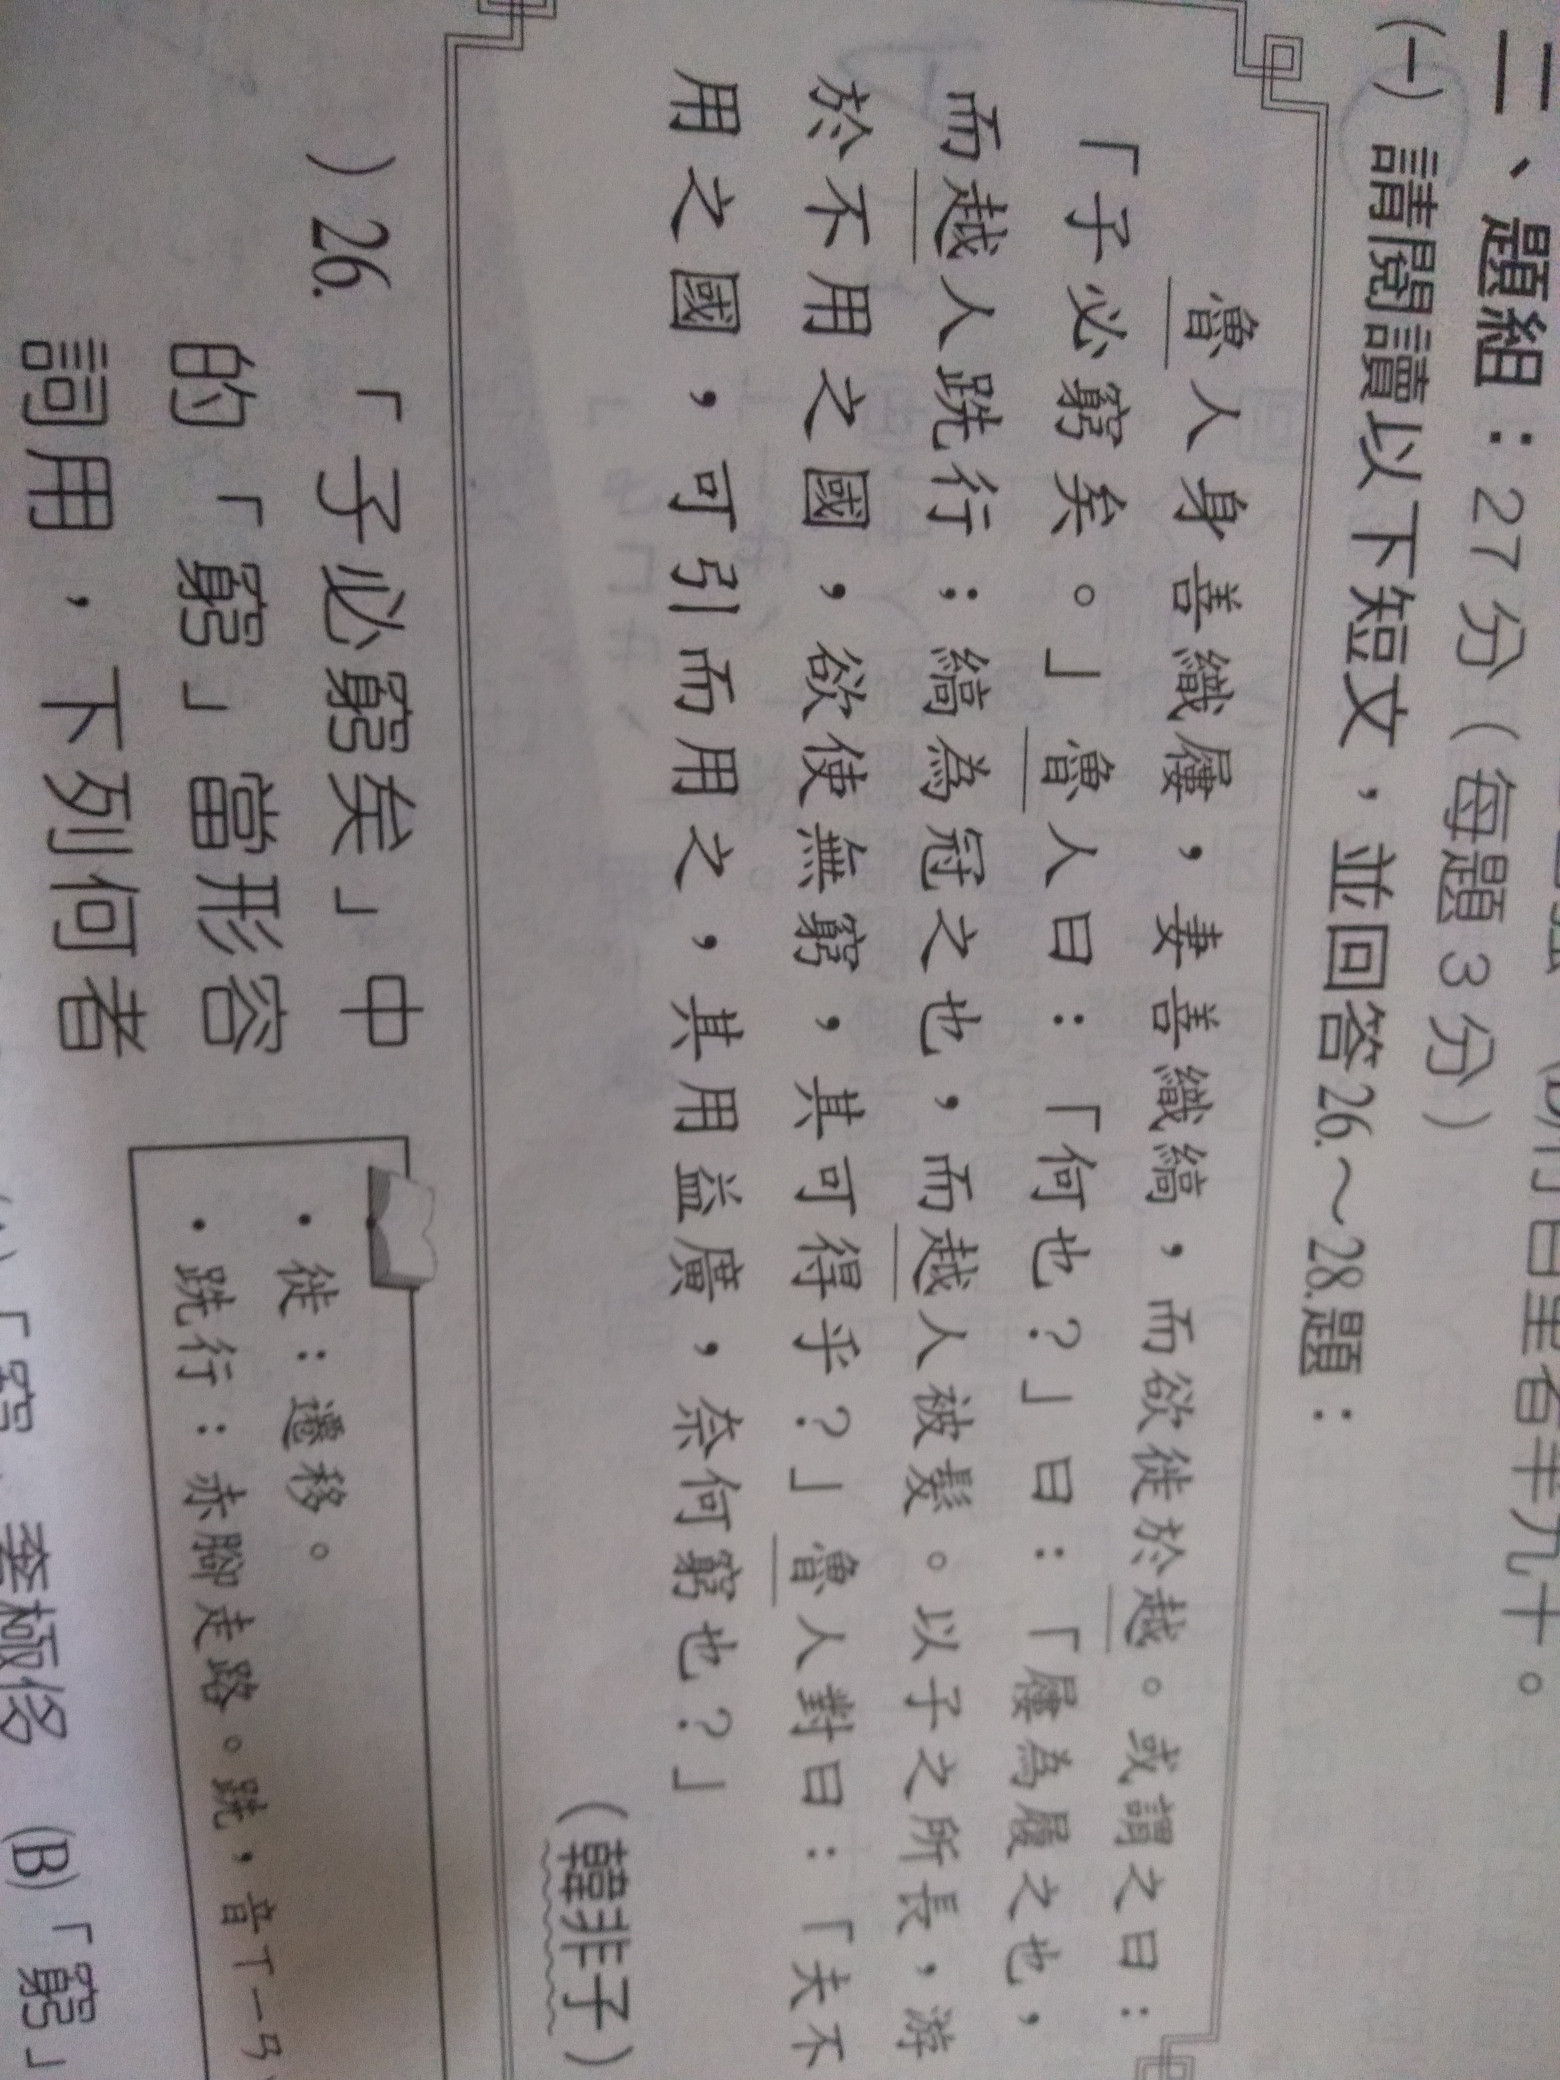 行百里者半九十。
二、題組：27分（每題3分）
(一)請閱讀以下短文，並回答26.～28.題：
魯人身善織屨，妻善織縞，而欲徙於越。或謂之曰：
「子必窮矣。」魯人曰：「何也？」曰：「屨為履之也，
而越人跣行；縞為冠之也，而越人被髮。以子之所長，游
於不用之國，欲使無窮，其可得乎？」魯人對曰：「夫不
用之國，可引而用之，其用益廣，奈何窮也？」
（韓非子）
）26.「子必窮矣」中
的「窮」當形容
詞用，下列何者
•徙：遷移。
•跣行：赤腳走路。跣，音ㄒㄧㄢ
(B)「窮」